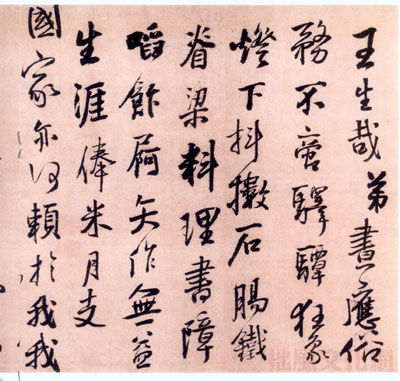 王生哉弟晝應俗
務不啻驛狂象
燈下抖擻石腸鐵
脊梁料理書障
啗飰屙矢作無益
生涯俸米月支
國家亦何賴於我我